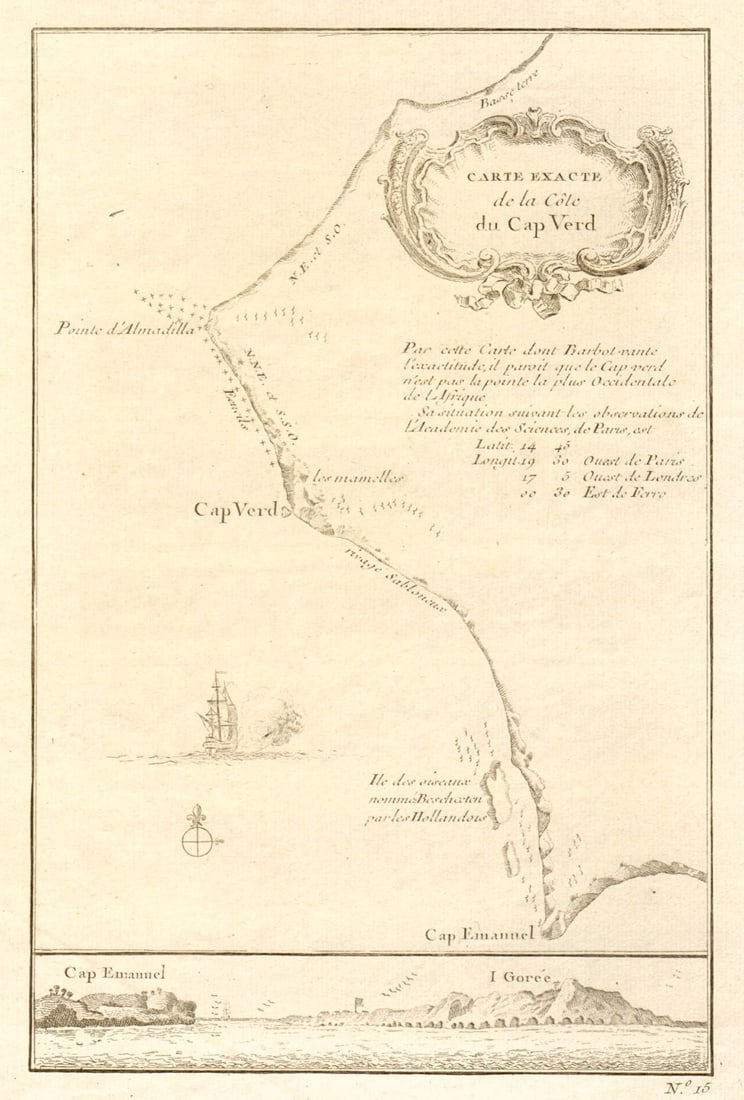 Basse terre
CARTE EXACTE
de la Côte
du Cap Verd
N.E. et S.O.
Pointe d'Almadilla
N.N.E. et S.S.O.
Ecueils
Par cette Carte dont Barbot vante
l'exactitude, il paroit que le Cap-verd
n'est pas la pointe la plus Occidentale
de L'Afrique
Sa situation suivant les observations de
L'Academie des Sciences, de Paris, est
Latit. 14 45
Longit. 19 30 Ouest de Paris
17 5 Ouest de Londres
00 30 Est de Ferro
les mamelles
Cap Verd
rivage Sabloneux
Ile des oiseaux
nommé Beschoeten
par les Hollandois
Cap Emanuel
Cap Emanuel
I Gorée
N.º 15